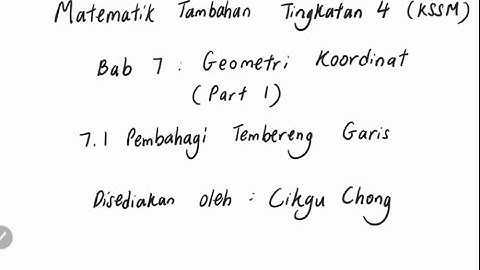 Matematik Tambahan Tingkatan 4 (KSSM)
Bab 7 : Geometri Koordinat
(Part 1)
7.1 Pembahagi Tembereng Garis
Disediakan oleh : Cikgu Chong